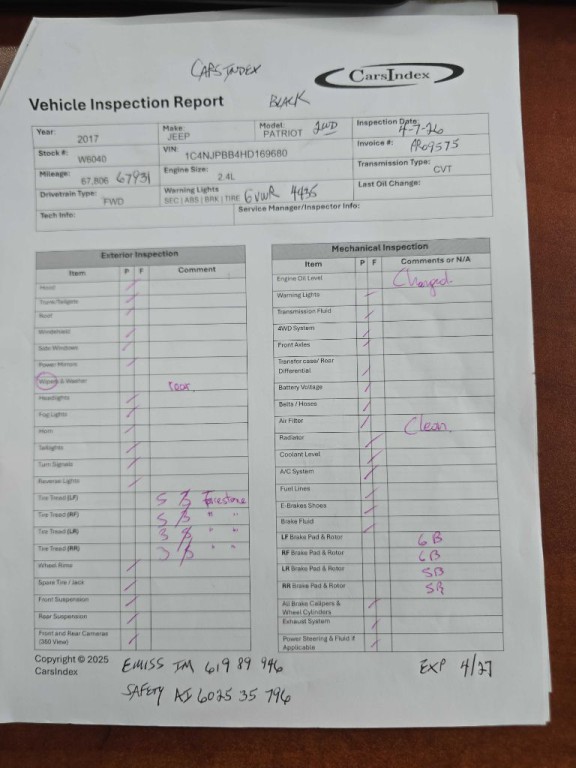 CARSINDEX
CarsIndex
Vehicle Inspection Report
BLACK
Year: 2017 Make: JEEP Model: PATRIOT 2WD Inspection Date: 4-7-26
Stock #: W6040 VIN: 1C4NJPBB4HD169680 Invoice #: AP09575
Mileage: 67,806 67931 Engine Size: 2.4L Transmission Type: CVT
Drivetrain Type: FWD Warning Lights SEC | ABS | BRK | TIRE GVWR 4435 Last Oil Change:
Tech Info: Service Manager/Inspector Info:
Exterior Inspection
Item P F Comment
Hood
Trunk/Tailgate
Roof
Windshield
Side Windows
Power Mirrors
Wipers & Washer
Headlights
Fog Lights
Horn
Taillights
Turn Signals
Reverse Lights
Tire Tread (LF) 5 Firestone
Tire Tread (RF) 5 " "
Tire Tread (LR) 3 " "
Tire Tread (RR) 3 " "
Wheel Rims
Spare Tire / Jack
Front Suspension
Rear Suspension
Front and Rear Cameras
(360 View)
Mechanical Inspection
Item P F Comments or N/A
Engine Oil Level Changed
Warning Lights
Transmission Fluid
4WD System
Front Axles
Transfer case/ Rear
Differential
Battery Voltage
Belts / Hoses
Air Filter Clean
Radiator
Coolant Level
A/C System
Fuel Lines
E-Brakes Shoes
Brake Fluid
LF Brake Pad & Rotor 6B
RF Brake Pad & Rotor 6B
LR Brake Pad & Rotor 5B
RR Brake Pad & Rotor 5B
All Brake Calipers &
Wheel Cylinders
Exhaust System
Power Steering & Fluid if
Applicable
Copyright © 2025
CarsIndex
EMISS IM 619 89 946
EXP 4/27
SAFETY AI 6025 35 796